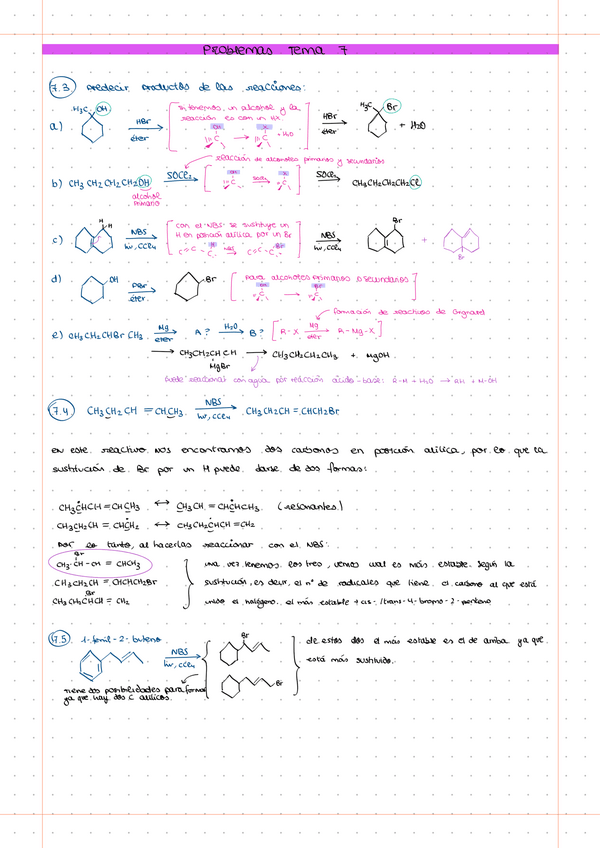 Problemas Tema 7
7.3 Predecir productos de las reacciones:
a) H3C OH HBr éter [Si tenemos un alcohol y la reacción es con un HX OH C → X C + H2O] HBr éter H3C Br + H2O
reacción de alcoholes primarios y secundarios
b) CH3CH2CH2CH2OH SOCl2 [OH C SOCl2 X C] SOCl2 CH3CH2CH2CH2Cl
alcohol primario
c) H H NBS hv, CCl4 [con el NBS se sustituye un H en posición alílica por un Br C=C-C H NBS C=C-C Br] NBS hv, CCl4 Br + Br
d) OH PBr éter Br [para alcoholes primarios o secundarios OH C → Br C]
formación de reactivos de Grignard
e) CH3CH2CHBrCH3 Mg éter A? H2O B? [R-X Mg éter R-Mg-X]
→ CH3CH2CHCH3 MgBr → CH3CH2CH2CH3 + MgOH
puede reaccionar con agua por reacción ácido-base: R-M + H2O → RH + M-OH
7.4 CH3CH2CH=CHCH3 NBS hv, CCl4 CH3CH2CH=CHCH2Br
En este reactivo nos encontramos dos carbonos en posición alílica, por lo que la
sustitución de Br por un H puede darse de dos formas:
CH3ĊHCH=CHCH3 ↔ CH3CH=CHĊHCH3 (resonantes)
CH3CH2CH=CHĊH2 ↔ CH3CH2ĊHCH=CH2
Por lo tanto, al hacerlas reaccionar con el NBS:
Br
CH3-CH-CH=CHCH3 una vez tenemos los tres, vemos cual es más estable. Según la
CH3CH2CH=CHCH2Br sustitución, es decir, el nº de radicales que tiene el carbono al que está
Br
CH3CH2CHCH=CH2 unido el halógeno. el más estable → cis-/trans-4-bromo-2-penteno
7.5 1-fenil-2-buteno NBS hv, CCl4 Br de estos dos el más estable es el de arriba ya que
está más sustituido.
Br
tiene dos posibilidades para formar
ya que hay dos C alílicos.